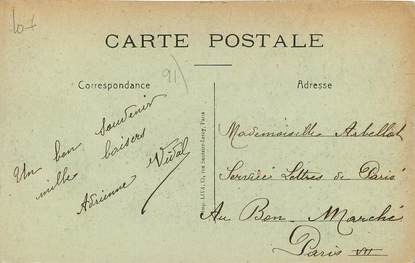 CARTE POSTALE
Correspondance
91)
Adresse
Un bon souvenir
mille baisers
Adrienne Vidal
Mademoiselle Arbellot
Service Lettres de Paris
Au Bon-Marché
Paris VII